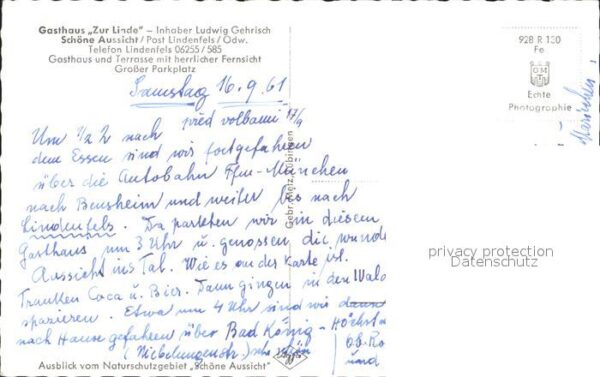 Gasthaus „Zur Linde" – Inhaber Ludwig Gehrisch
Schöne Aussicht / Post Lindenfels / Odw.
Telefon Lindenfels 06255 / 585
Gasthaus und Terrasse mit herrlicher Fernsicht
Großer Parkplatz
928 R 130
Fe
Echte
Photographie
Samstag 16.9.61
17/9
Um ½ 2 nach
dem Essen sind wir fortgefahren
über die Autobahn Ffm-München
nach Bensheim und weiter bis nach
Lindenfels. Da parkten wir in diesem
Gasthaus um 3 Uhr u. genossen die wunde
Aussicht ins Tal. Wie es auf der Karte ist.
Tranken Coca u. Bier. Dann gingen in den Wald
spazieren. Etwa um 4 Uhr sind wir dann
nach Hause gefahren über Bad König - Höchst
(Nibelungenstr.) schön
und
Gebr. Metz, Tübingen
privacy protection
Datenschutz
Ausblick vom Naturschutzgebiet „Schöne Aussicht"